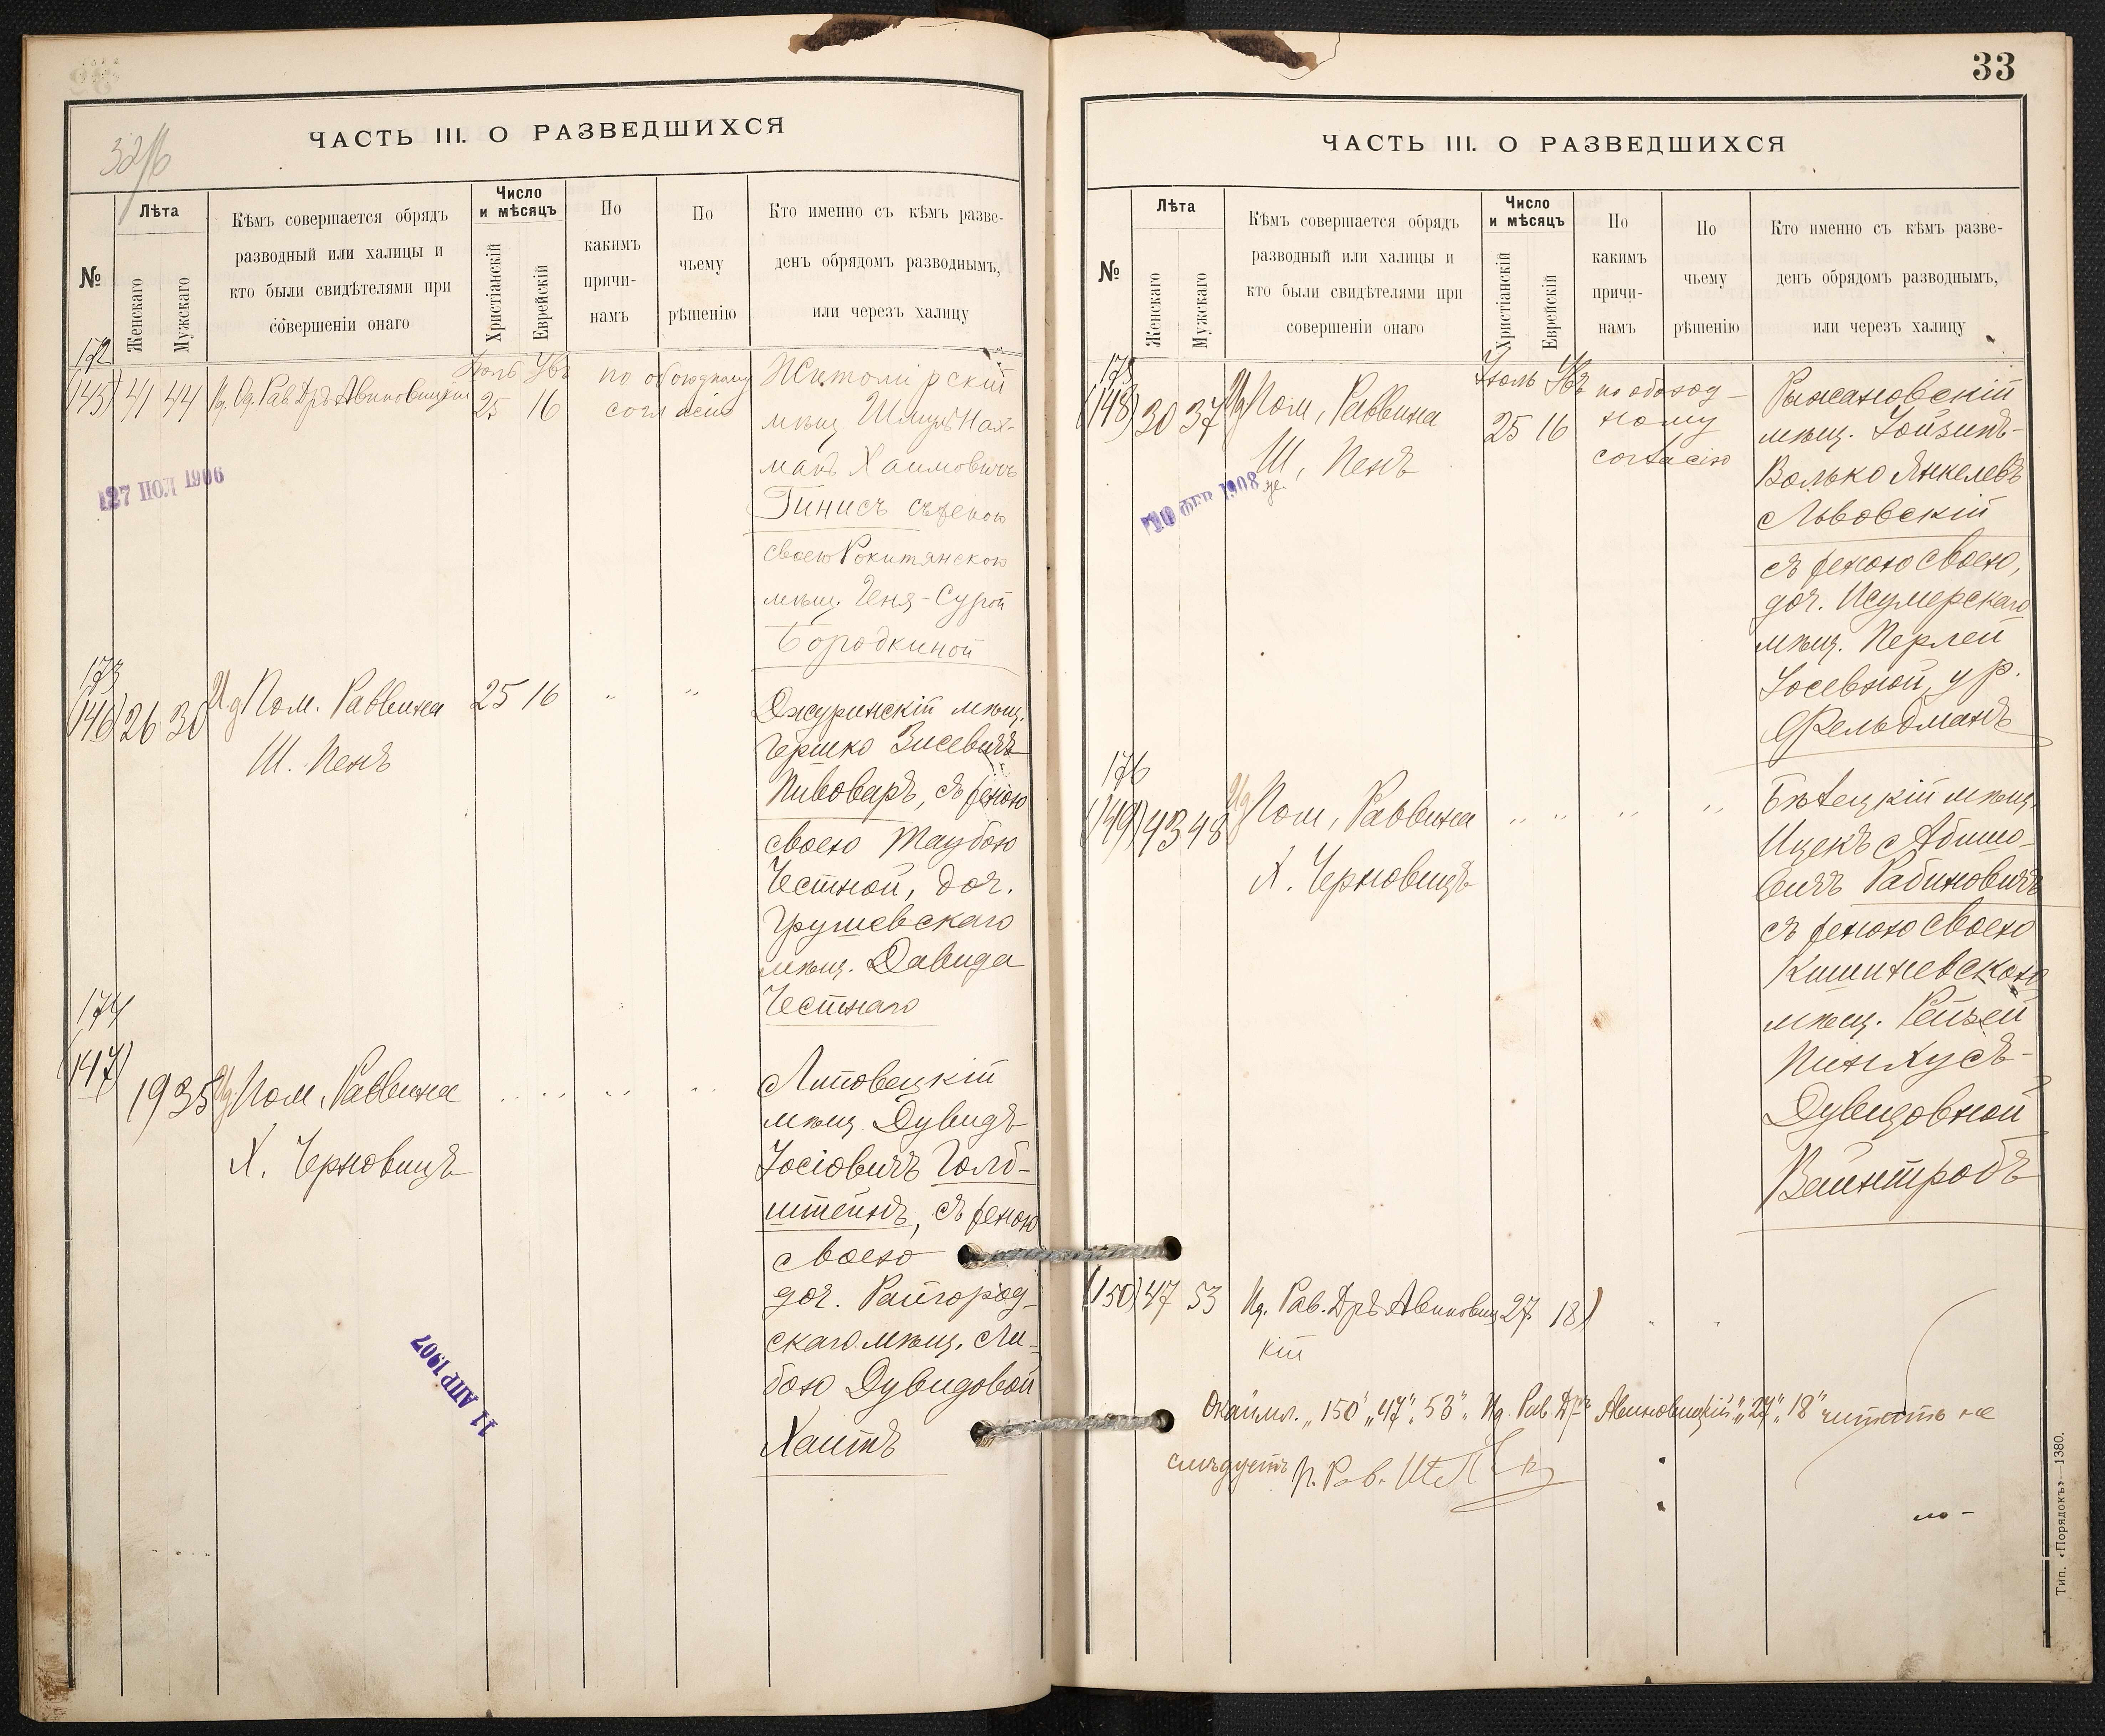 ЧАСТЬ III. О РАЗВЕДШИХСЯ
№
Лѣта
Женскаго
Мужскаго
Кѣмъ совершается обрядъ
разводный или халицы и
кто были свидѣтелями при
совершеніи онаго
Число
и мѣсяцъ
Христіанскій
Еврейскій
По
какимъ
причи-
намъ
По
чьему
рѣшенію
Кто именно съ кѣмъ разве-
денъ обрядомъ разводнымъ,
или черезъ халицу
172
(145) 41 44
Ид. Од. Рав. Дръ Авиновицкій
25 16
по обоюдному
согласію
Житомірскій
мѣщ. Шмуль Нах-
манъ Хаимовичъ
Гинисъ съ женою
своею Рокитянскою
мѣщ. Геня-Сурой
Бородкиной
127 ІЮЛ 1906
173
(146) 26 30
Ид Пом. Раввина
Ш. Пенъ
25 16 " "
Джуринскій мѣщ.
Гершко Зисевичъ
Пивоваръ, съ женою
своею Таубою
Честной, доч.
Грушевскаго
мѣщ. Давида
Честнаго
174
(147)
19 35
Ид Пом. Раввина
Х. Черновицъ
" " " "
Липовецкій
мѣщ Дувидъ
Іосіовичъ Голд-
штейнъ, съ женою
своею
доч. Райгород-
скаго мѣщ. Ли-
бою Дувидовой
Хаитъ
11 АПР 1907
33
ЧАСТЬ III. О РАЗВЕДШИХСЯ
№
Лѣта
Женскаго
Мужскаго
Кѣмъ совершается обрядъ
разводный или халицы и
кто были свидѣтелями при
совершеніи онаго
Число
и мѣсяцъ
Христіанскій
Еврейскій
По
какимъ
причи-
намъ
По
чьему
рѣшенію
Кто именно съ кѣмъ разве-
денъ обрядомъ разводнымъ,
или черезъ халицу
175
(148) 30 37
Ид Пом, Раввина
Ш, Пенъ
Іюль
25 16
по обоюд-
ному
согласію
Рыжановскій
мѣщ. Іойзипъ-
Волько Янкелевъ
Львовскій
съ женою своею,
доч. Исумерскаго
мѣщ. Перлей
Іосевной, ур.
Фельдманъ
10 ФЕВ 1908
176
(149) 43 48
Ид Пом, Раввина
Х. Черновицъ
" " " "
Бѣлецкій мѣщ.
Ицекъ Абишо-
вичъ Рабиновичъ
съ женою своею
Кишиневскою
мѣщ. Рейзей
Пинхусъ-
Дувидовной
Вайнтробъ
(150) 47 53
Ид. Рав. Дръ Авиновиц
кій
27 18)
" "
Окаймл. „150" „47" „53" „Ид. Рав. Дръ Авиновицкій" „27" „18" читать не
слѣдуетъ
Тип. «Порядокъ»—1380.